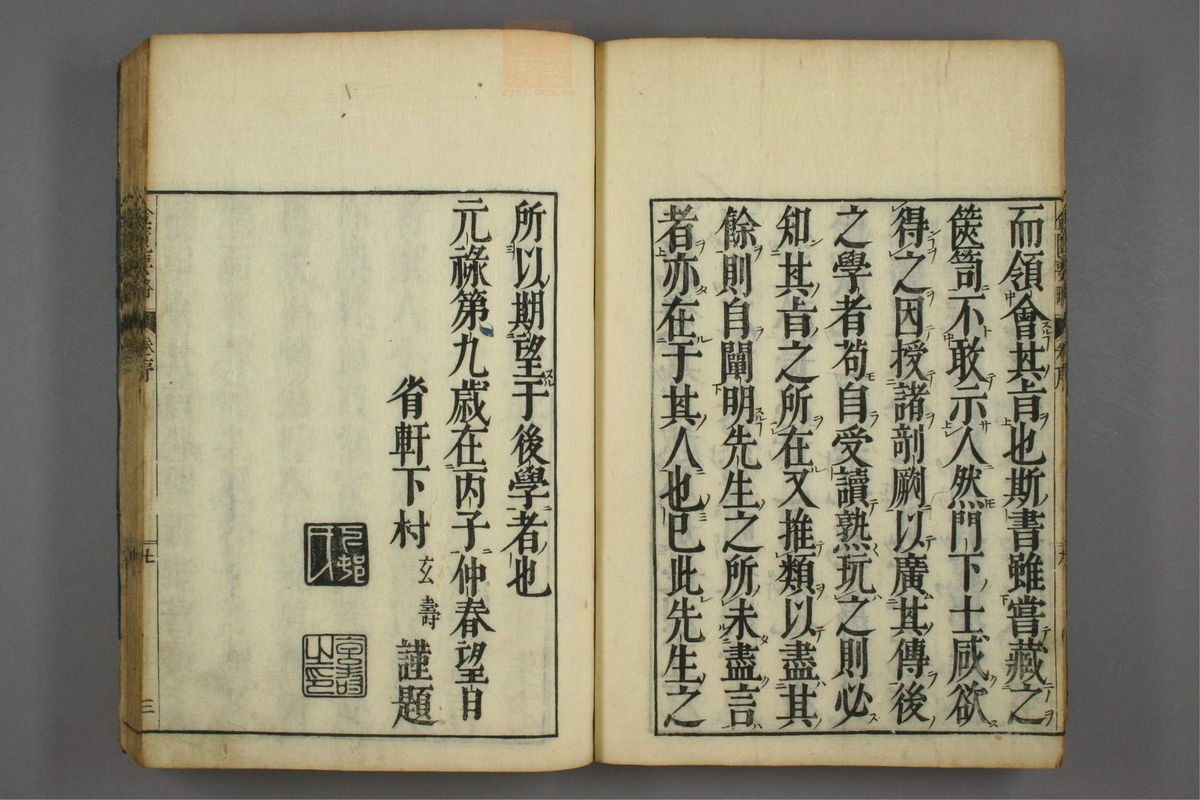 而領會其旨也斯書雖嘗藏之
篋笥不敢示人然門下士咸欲
得之因授諸剞劂以廣其傳後
之學者苟自受讀熟玩之則必
知其旨之所在又推類以盡其
餘則自闡明先生之所未盡言
者亦在于其人也已此先生之
所以期望于後學者也
元祿第九歲在丙子仲春望日
省軒下村玄壽謹題